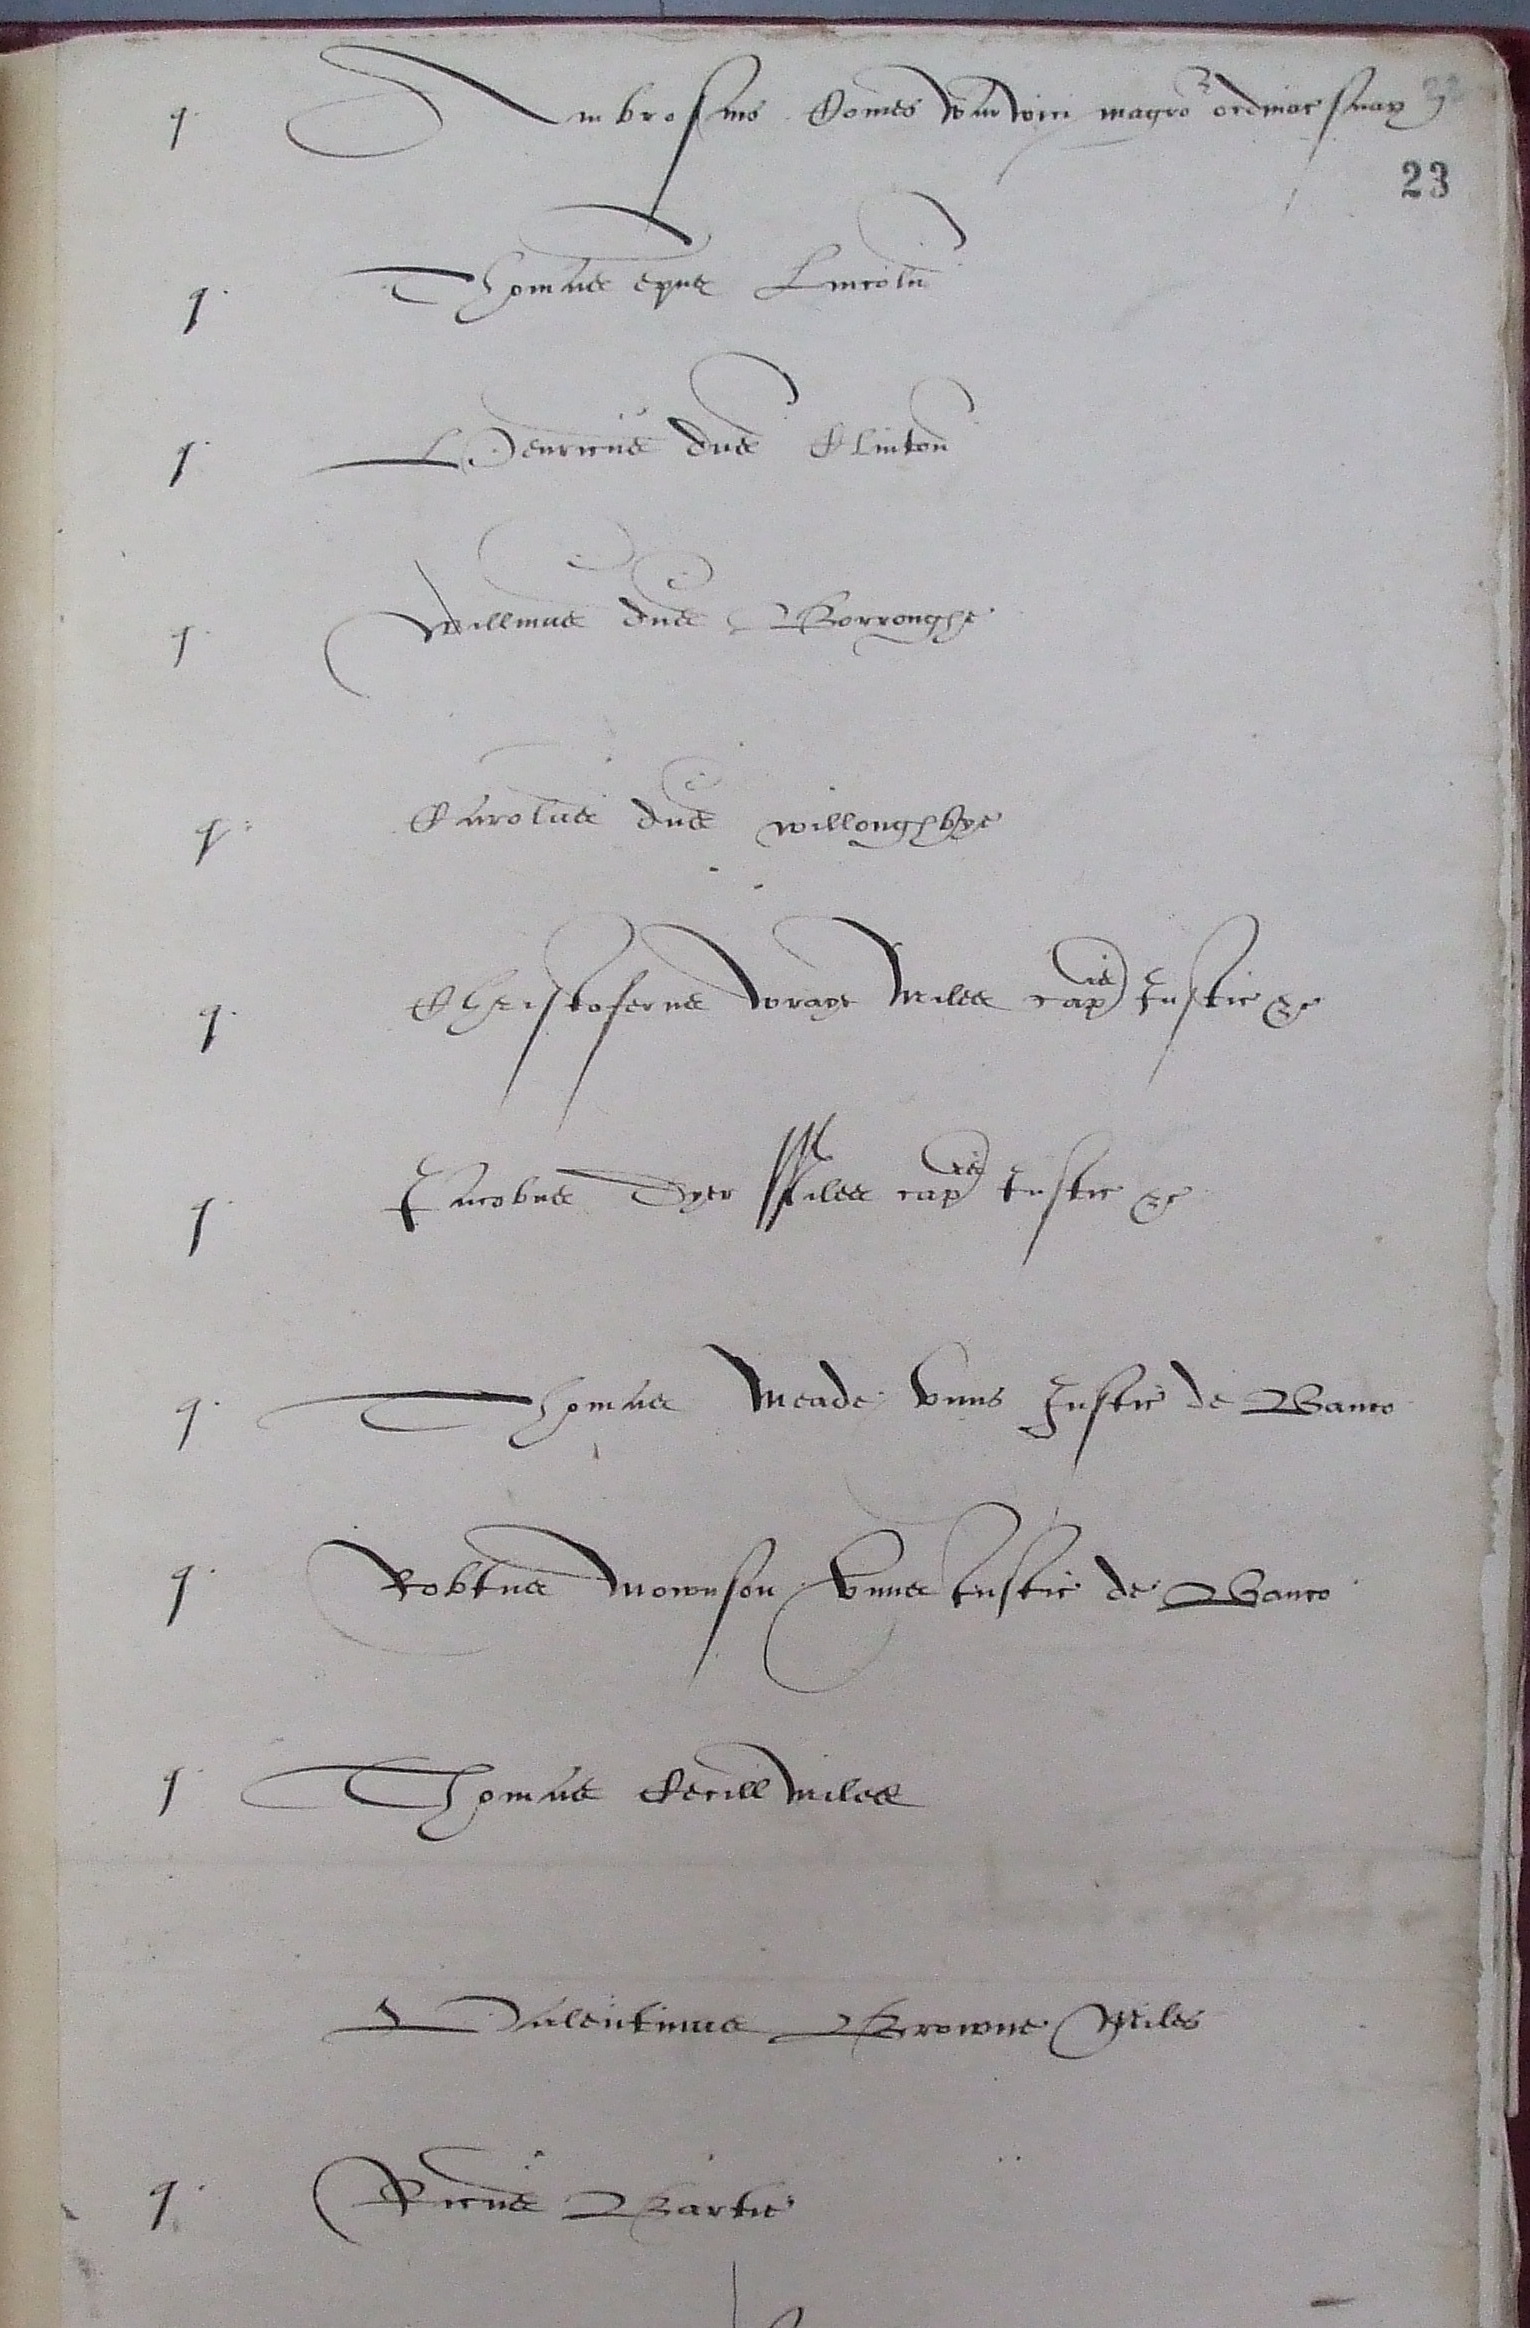 q. Ambrosius Comes Warwici magr̃o ordinac͠ suaꝝ
23
q. Thomas ep̃us Lincoln̄
q. Henricus dñs Clinton
q. Will̃mus dñs Borroughe
q. Carolus dñs willoughbye
q. Christoferus Wraye Miles cap^is Justic̄ &c
q. Jacobus Dyer Miles cap^is Justic̄ &c
q. Thomas Meade vnus Justic̄ de Banco
q. Rob̃tus Mownson vnus Justic̄ de Banco
q. Thomas Cecill Miles
Valentinus Browne Miles
q. Ric̃us Bartie